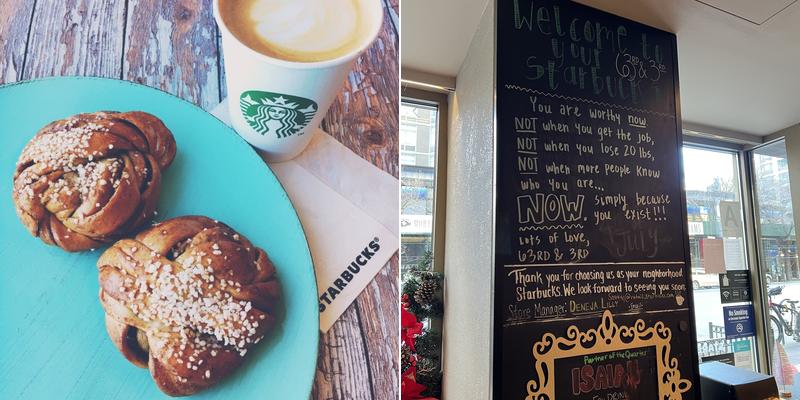 STARBUCKS®
Welcome to
your 63RD & 3RD
Starbucks
You are worthy now
NOT when you get the job,
NOT when you lose 20 lbs,
NOT when more people know
who you are...
NOW. simply because
you exist!!!
Lots of Love,
63RD & 3RD
Thank you for choosing us as your neighborhood
Starbucks. We look forward to seeing you soon
Store Manager: DENEJA LILLY
Partner of the Quarter
ISAIAH
Fav DRINK
A
No Smoking